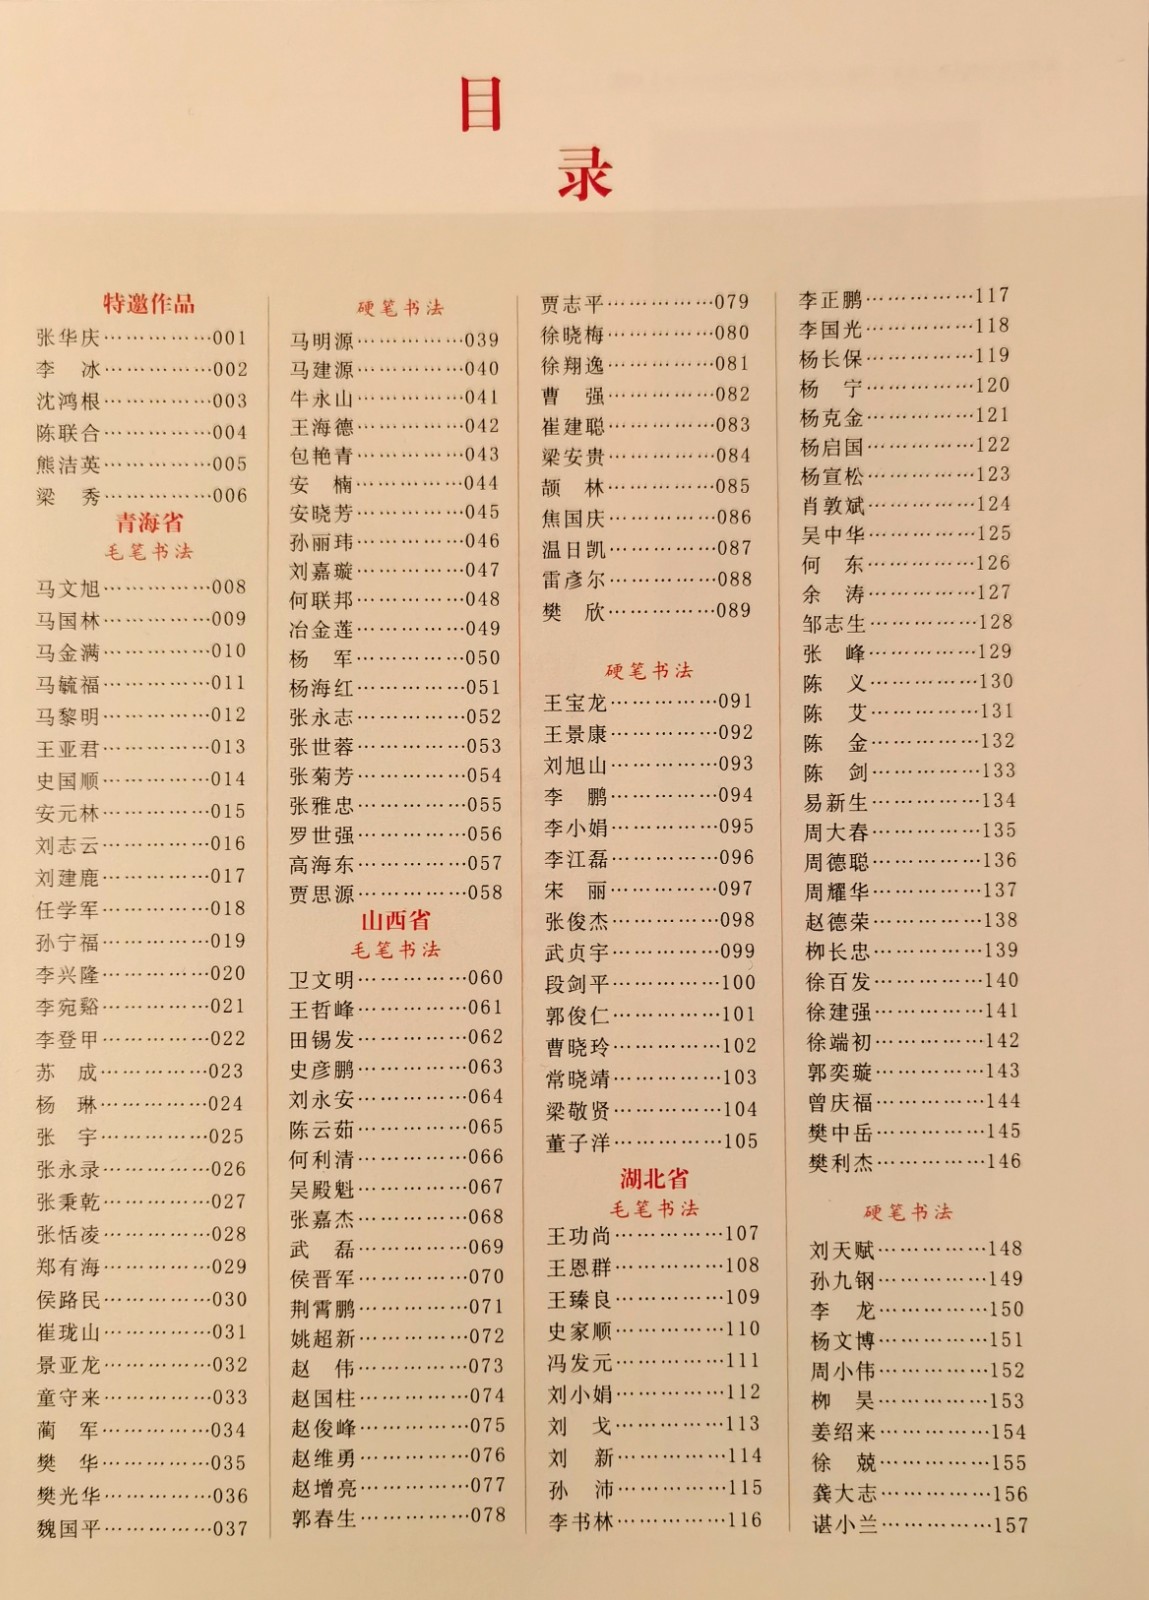 目
录
特邀作品
张华庆……………001
李　冰……………002
沈鸿根……………003
陈联合……………004
熊洁英……………005
梁　秀……………006
青海省
毛笔书法
马文旭……………008
马国林……………009
马金满……………010
马毓福……………011
马黎明……………012
王亚君……………013
史国顺……………014
安元林……………015
刘志云……………016
刘建鹿……………017
任学军……………018
孙宁福……………019
李兴隆……………020
李宛谿……………021
李登甲……………022
苏　成……………023
杨　琳……………024
张　宇……………025
张永录……………026
张秉乾……………027
张恬凌……………028
郑有海……………029
侯路民……………030
崔珑山……………031
景亚龙……………032
童守来……………033
蔺　军……………034
樊　华……………035
樊光华……………036
魏国平……………037
硬笔书法
马明源……………039
马建源……………040
牛永山……………041
王海德……………042
包艳青……………043
安　楠……………044
安晓芳……………045
孙丽玮……………046
刘嘉璇……………047
何联邦……………048
冶金莲……………049
杨　军……………050
杨海红……………051
张永志……………052
张世蓉……………053
张菊芳……………054
张雅忠……………055
罗世强……………056
高海东……………057
贾思源……………058
山西省
毛笔书法
卫文明……………060
王哲峰……………061
田锡发……………062
史彦鹏……………063
刘永安……………064
陈云茹……………065
何利清……………066
吴殿魁……………067
张嘉杰……………068
武　磊……………069
侯晋军……………070
荆霄鹏……………071
姚超新……………072
赵　伟……………073
赵国柱……………074
赵俊峰……………075
赵维勇……………076
赵增亮……………077
郭春生……………078
贾志平……………079
徐晓梅……………080
徐翔逸……………081
曹　强……………082
崔建聪……………083
梁安贵……………084
颉　林……………085
焦国庆……………086
温日凯……………087
雷彦尔……………088
樊　欣……………089
硬笔书法
王宝龙……………091
王景康……………092
刘旭山……………093
李　鹏……………094
李小娟……………095
李江磊……………096
宋　丽……………097
张俊杰……………098
武贞宇……………099
段剑平……………100
郭俊仁……………101
曹晓玲……………102
常晓靖……………103
梁敬贤……………104
董子洋……………105
湖北省
毛笔书法
王功尚……………107
王恩群……………108
王臻良……………109
史家顺……………110
冯发元……………111
刘小娟……………112
刘　戈……………113
刘　新……………114
孙　沛……………115
李书林……………116
李正鹏……………117
李国光……………118
杨长保……………119
杨　宁……………120
杨克金……………121
杨启国……………122
杨宣松……………123
肖敦斌……………124
吴中华……………125
何　东……………126
余　涛……………127
邹志生……………128
张　峰……………129
陈　义……………130
陈　艾……………131
陈　金……………132
陈　剑……………133
易新生……………134
周大春……………135
周德聪……………136
周耀华……………137
赵德荣……………138
栁长忠……………139
徐百发……………140
徐建强……………141
徐端初……………142
郭奕璇……………143
曾庆福……………144
樊中岳……………145
樊利杰……………146
硬笔书法
刘天赋……………148
孙九钢……………149
李　龙……………150
杨文博……………151
周小伟……………152
栁　昊……………153
姜绍来……………154
徐　兢……………155
龚大志……………156
谌小兰……………157